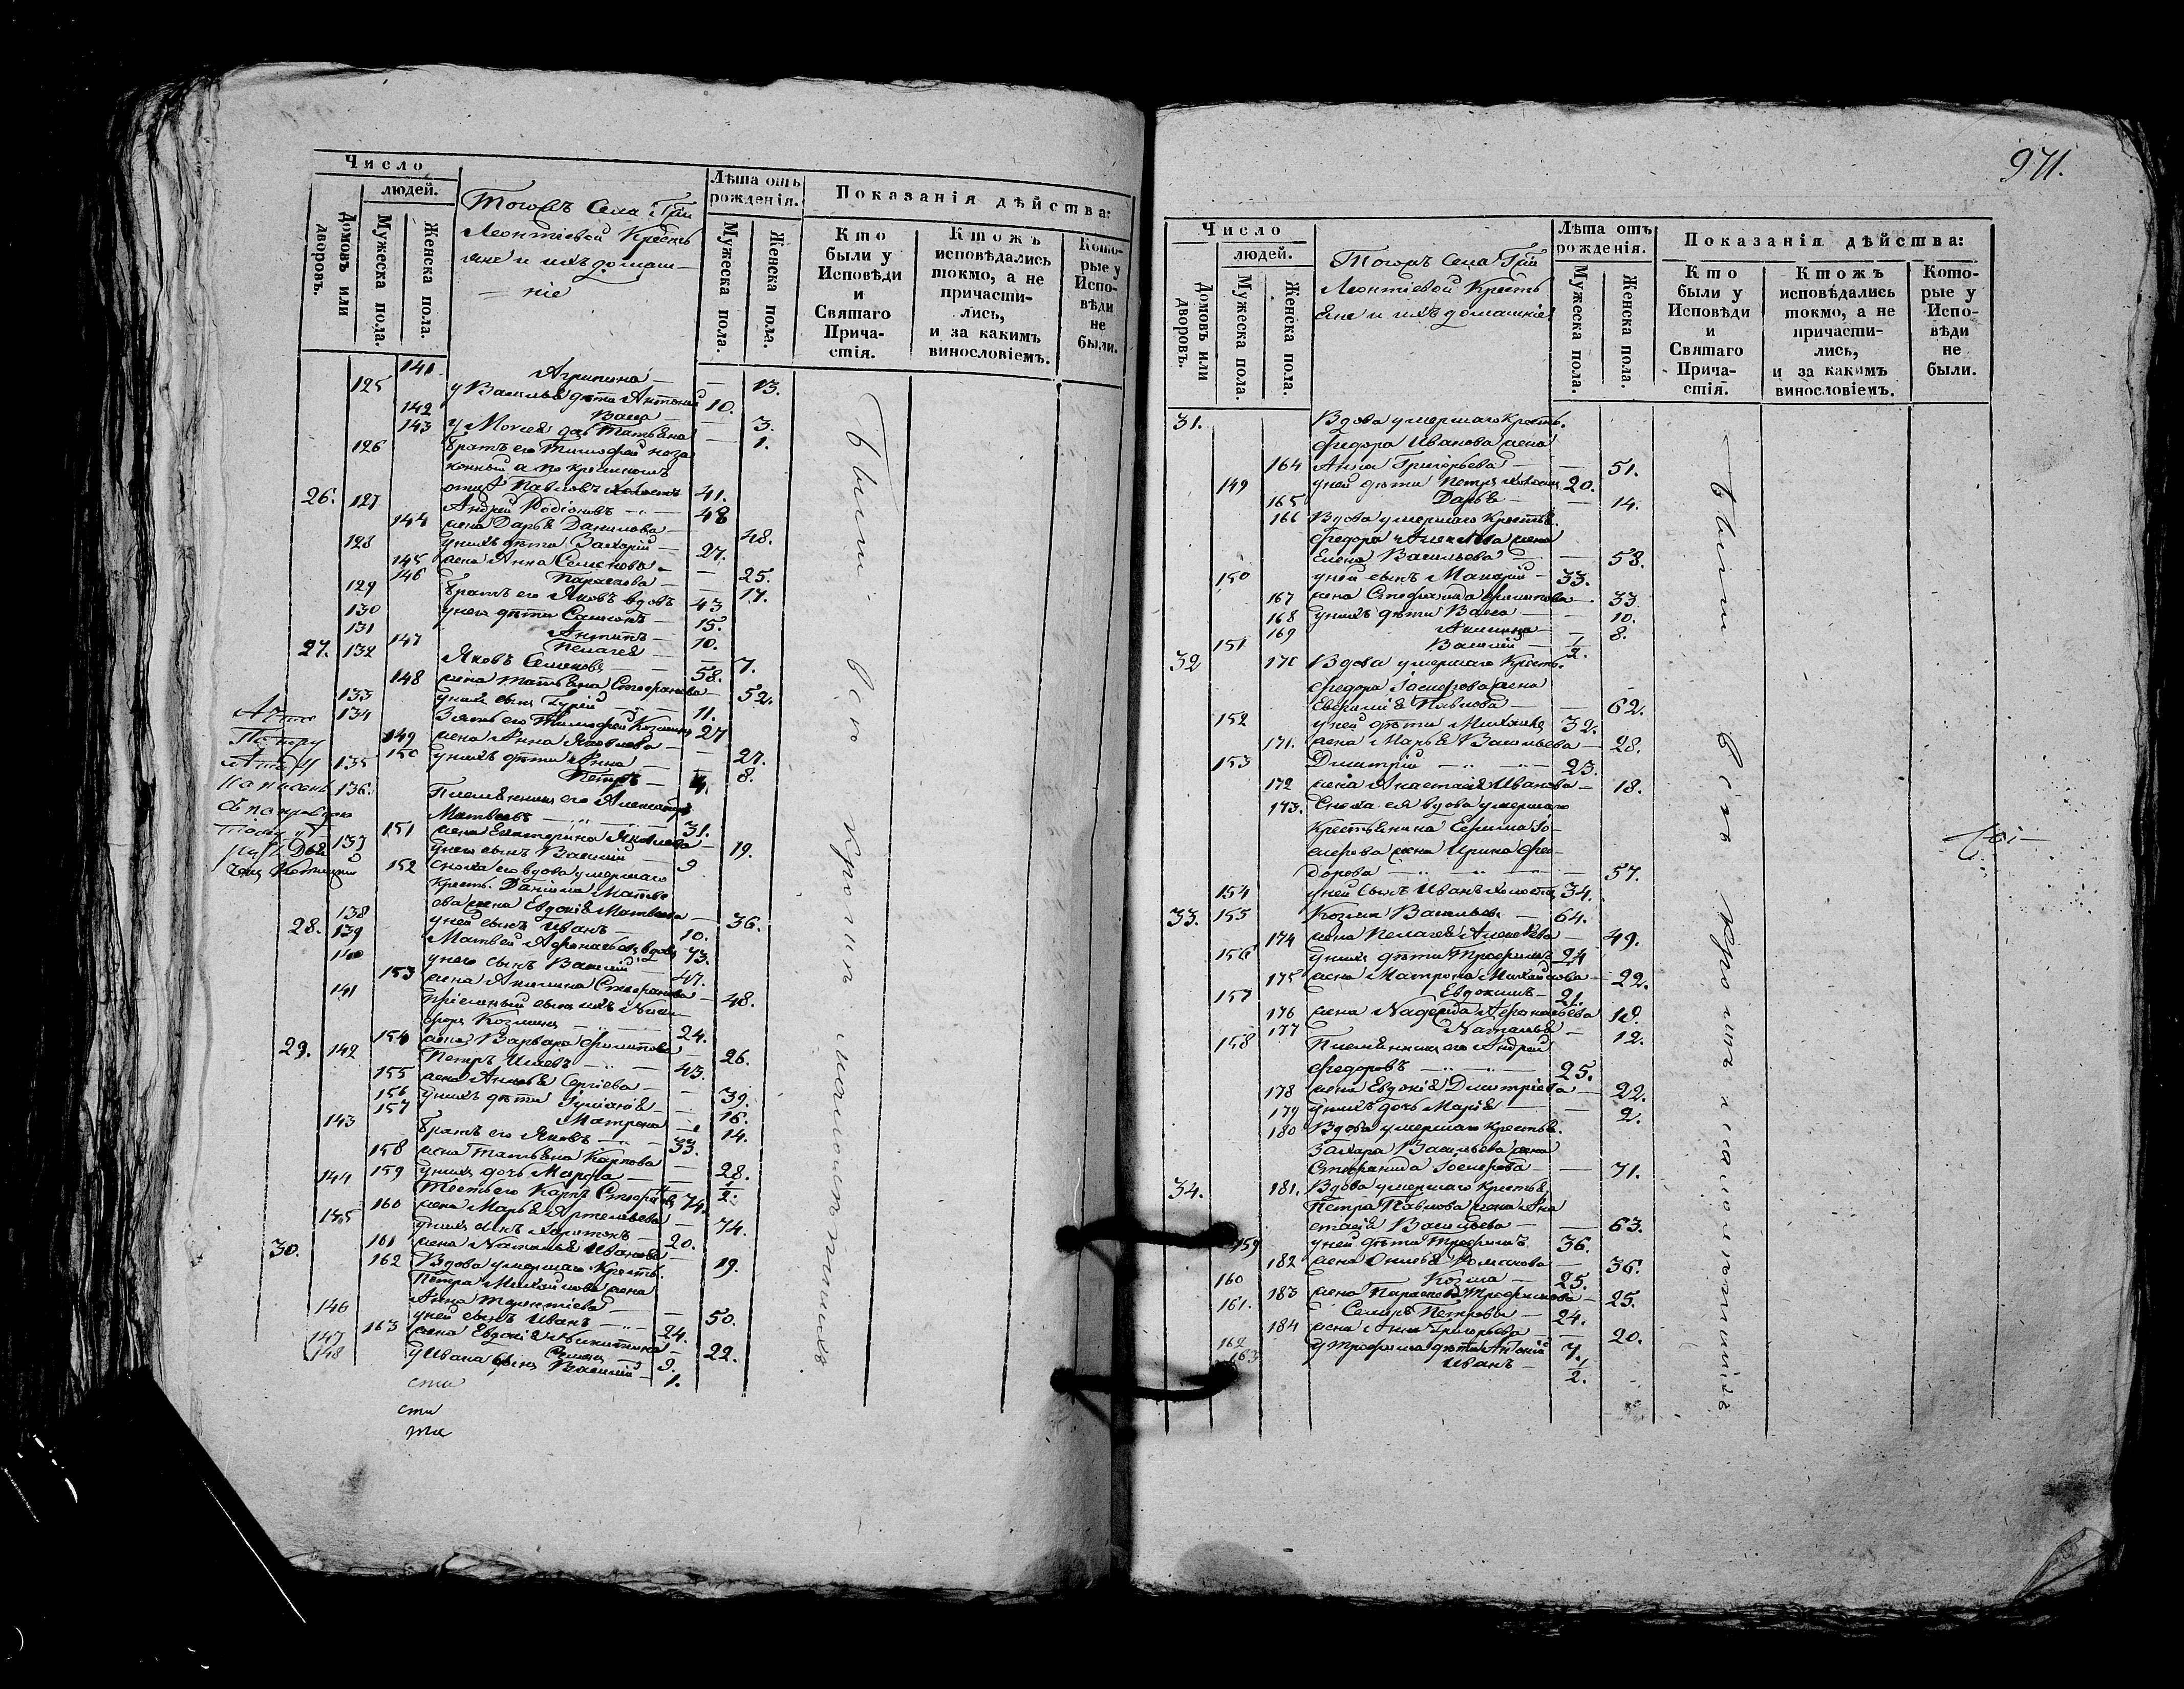 Число
людей.
Домовъ или дворовъ.
Мужеска пола.
Женска пола.
Тогожъ Села Гри
Леонтіевой Кресть
яне и ихъ домаш-
ніе
Лѣта отъ
рожденія.
Мужеска пола.
Женска пола.
Показанія дѣйства:
Кто
были у
Исповѣди
и
Святаго
Прича-
стія.
Ктожъ
исповѣдались
токмо, а не
причасти-
лись,
и за какимъ
винословіемъ.
Кото-
рые у
Испо-
вѣди
не
были.
141. Агрипина — 13.
125 у Василья дѣти Антоній 10.
142 Васса — 3.
143 у Моисея дочь Татьяна — 1.
126 братъ его Тимофей неза
конный а по крестному
отцу Павловъ холостъ 41.
26. 127 Андрей Родіоновъ — 48
144 жена Дарья Данилова — 48.
128 у нихъ дѣти Захарій — 27.
145 жена Анна Семенова — 25.
146 Параскева — 17.
129 братъ его Яковъ вдовъ 43
130 у него дѣти Самсонъ — 15.
131 Антипъ — 10.
147 Пелагея — 7.
27. 132 Яковъ Семеновъ — 58.
148 жена Татьяна Стефанова — 52.
133 у нихъ сынъ Гурій — 11.
134 Зять его Тимофей Козминъ 27
149 жена Анна Яковлева — 27.
150 у нихъ дѣти Анна — 8.
135 Петръ — 4.
136. Племянникъ его Александръ
Матвѣевъ — 31.
151 жена Екатерина Яковлева — 19.
137 у него сынъ Василій — 9
152 Сноха его вдова умершаго
Кресть. Даніила Матве
ева жена Евдокія Матвеева — 36.
138 у ней сынъ Иванъ — 10.
28. 139 Матвей Афонасьевъ вдовъ 73.
140 у него сынъ Василій — 47.
153 жена Акилина Стефанова — 48.
141 пріемный сынъ ихъ Ники-
форъ Козминъ — 24.
154 жена Варвара Филипова — 26.
29. 142 Петръ Ильевъ — 43.
155 жена Анисья Сергіева — 39.
156 у нихъ дѣти Іуліанія — 16.
157 Матрена — 14.
143 братъ его Яковъ — 33.
158 жена Татьяна Карпова — 28.
159 у нихъ дочь Марфа — 1/2.
144 Тесть его Карпъ Стефановъ 74.
160 жена Марья Артемьева — 74.
145 у нихъ сынъ Харитонъ — 20.
161 жена Наталья Иванова — 19.
30. 162 Вдова умершаго Кресть.
Петра Михайлова жена
Анна Терентіева — 50.
146 у ней сынъ Иванъ — 24.
163 жена Евдокія Никитина — 22.
147 Семенъ 9.
148 у Ивана сынъ Василій — 1.
сти
сти
тіе
Были вси кромѣ малолѣтнихъ
971.
Число
людей.
Домовъ или дворовъ.
Мужеска пола
Женска пола.
Тогожъ Села Гри
Леонтіевой Кресть
яне и ихъ домашніе
Лѣта отъ
рожденія.
Мужеска пола.
Женска пола.
Показанія дѣйства:
Кто
были у
Исповѣди
и
Святаго
Прича-
стія.
Ктожъ
исповѣдались
токмо, а не
причасти-
лись,
и за какимъ
винословіемъ.
Кото-
рые у
Испо-
вѣди
не
были.
31. Вдова умершаго Кресть.
Федора Иванова жена
164 Анна Григорьева — 51.
149 у ней дѣти Петръ холостъ 20.
165 Дарья — 14.
166 Вдова умершаго Крестья.
Федора Алексѣева жена
Елена Васильева — 58.
150 у ней сынъ Макарій — 33.
167 жена Стефанида Филипова — 33
168 у нихъ дѣти Васса — 10.
169 Акилина — 8.
151 Василій — 1/2.
32 170 Вдова умершаго Кресть.
Федора Іосифова жена
Евфимія Павлова — 62.
152 у ней дѣти Михаилъ 32.
171. жена Марья Васильева — 28.
153 Дмитрій — 23.
172 жена Анастасія Иванова — 18.
173. Сноха ея вдова умершаго
Крестьянина Ефима Іо-
сифова жена Ирина Фео-
дорова — 57.
154 у ней сынъ Иванъ холостъ 34.
33. 155 Козма Васильевъ — 64.
174 жена Пелагея Алексѣева — 49.
156 у нихъ дѣти Трофимъ 24
175 жена Матрона Михайлова — 22.
157 Евдокимъ — 21.
176 жена Надежда Афонасьева 19.
177 Наталья — 12.
158 Племянникъ его Андрей
Федоровъ — 25.
178 жена Евдокія Дмитріева — 22.
179 у нихъ дочь Марія — 2.
180 Вдова умершаго Крестья.
Захара Васильева жена
Стефанида Іосифова — 71.
34. 181. Вдова умершаго Крестья
Петра Павлова жена Ана
стасія Васильева — 63.
159 у ней дѣти Трофимъ 36.
182 жена Фотинья Романова — 36.
160 Козма — 25.
183 жена Параскева Трофимова — 25.
161. Петровъ — 24.
184 жена Анна Григорьева — 20.
162 у Трофима дѣти Антоній 7.
163 Иванъ — 1/2.
Были вси кромѣ малолѣтнихъ